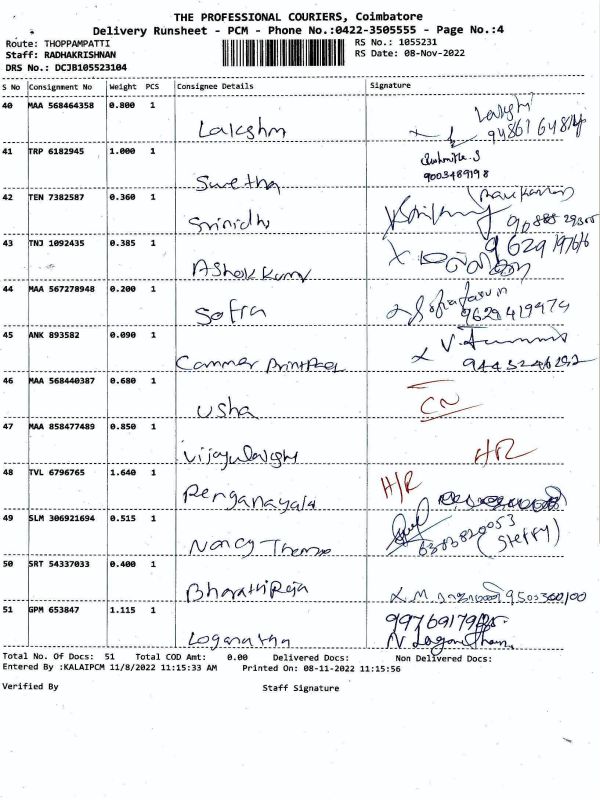 THE PROFESSIONAL COURIERS, Coimbatore
Delivery Runsheet - PCM - Phone No.:0422-3505555 - Page No.:4
Route: THOPPAMPATTI RS No.: 1055231
Staff: RADHAKRISHNAN RS Date: 08-Nov-2022
DRS No.: DCJB105523104
S No Consignment No Weight PCS Consignee Details Signature
40 MAA 568464358 0.800 1
Lakshmi
41 TRP 6182945 1.000 1
Swetha 9003489198
42 TEN 7382587 0.360 1
Srinidhi
43 TNJ 1092435 0.385 1
AShok Kumar
44 MAA 567278948 0.200 1
Sofia 9629419474
45 ANK 893582 0.090 1
46 MAA 568440387 0.680 1
Usha CN
47 MAA 858477489 0.850 1
Vijayalakshmi H/R
48 TVL 6796765 1.640 1
H/R
49 SLM 306921694 0.515 1
6383820053
Nancy (Steffy)
50 SRT 54337033 0.400 1
BharathiRaja
51 GPM 653847 1.115 1
Loganatha N. Loganathan
Total No. Of Docs: 51 Total COD Amt: 0.00 Delivered Docs: Non Delivered Docs:
Entered By :KALAIPCM 11/8/2022 11:15:33 AM Printed On: 08-11-2022 11:15:56
Verified By Staff Signature